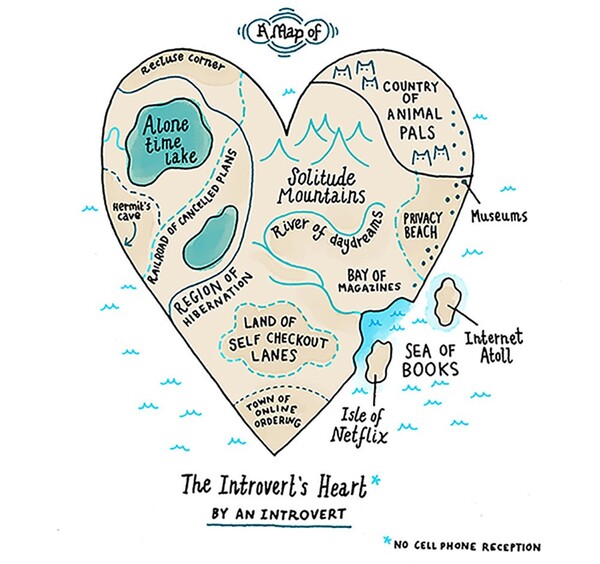 A Map of
Recluse corner
Alone
time
lake
Hermit's
cave
RAILROAD OF CANCELLED PLANS
REGION OF
HIBERNATION
COUNTRY
OF
ANIMAL
PALS
Solitude
Mountains
River of daydreams
PRIVACY
BEACH
Museums
BAY OF
MAGAZINES
LAND OF
SELF CHECKOUT
LANES
TOWN OF
ONLINE
ORDERING
SEA OF
BOOKS
Internet
Atoll
Isle of
Netflix
The Introvert's Heart*
BY AN INTROVERT
*NO CELL PHONE RECEPTION